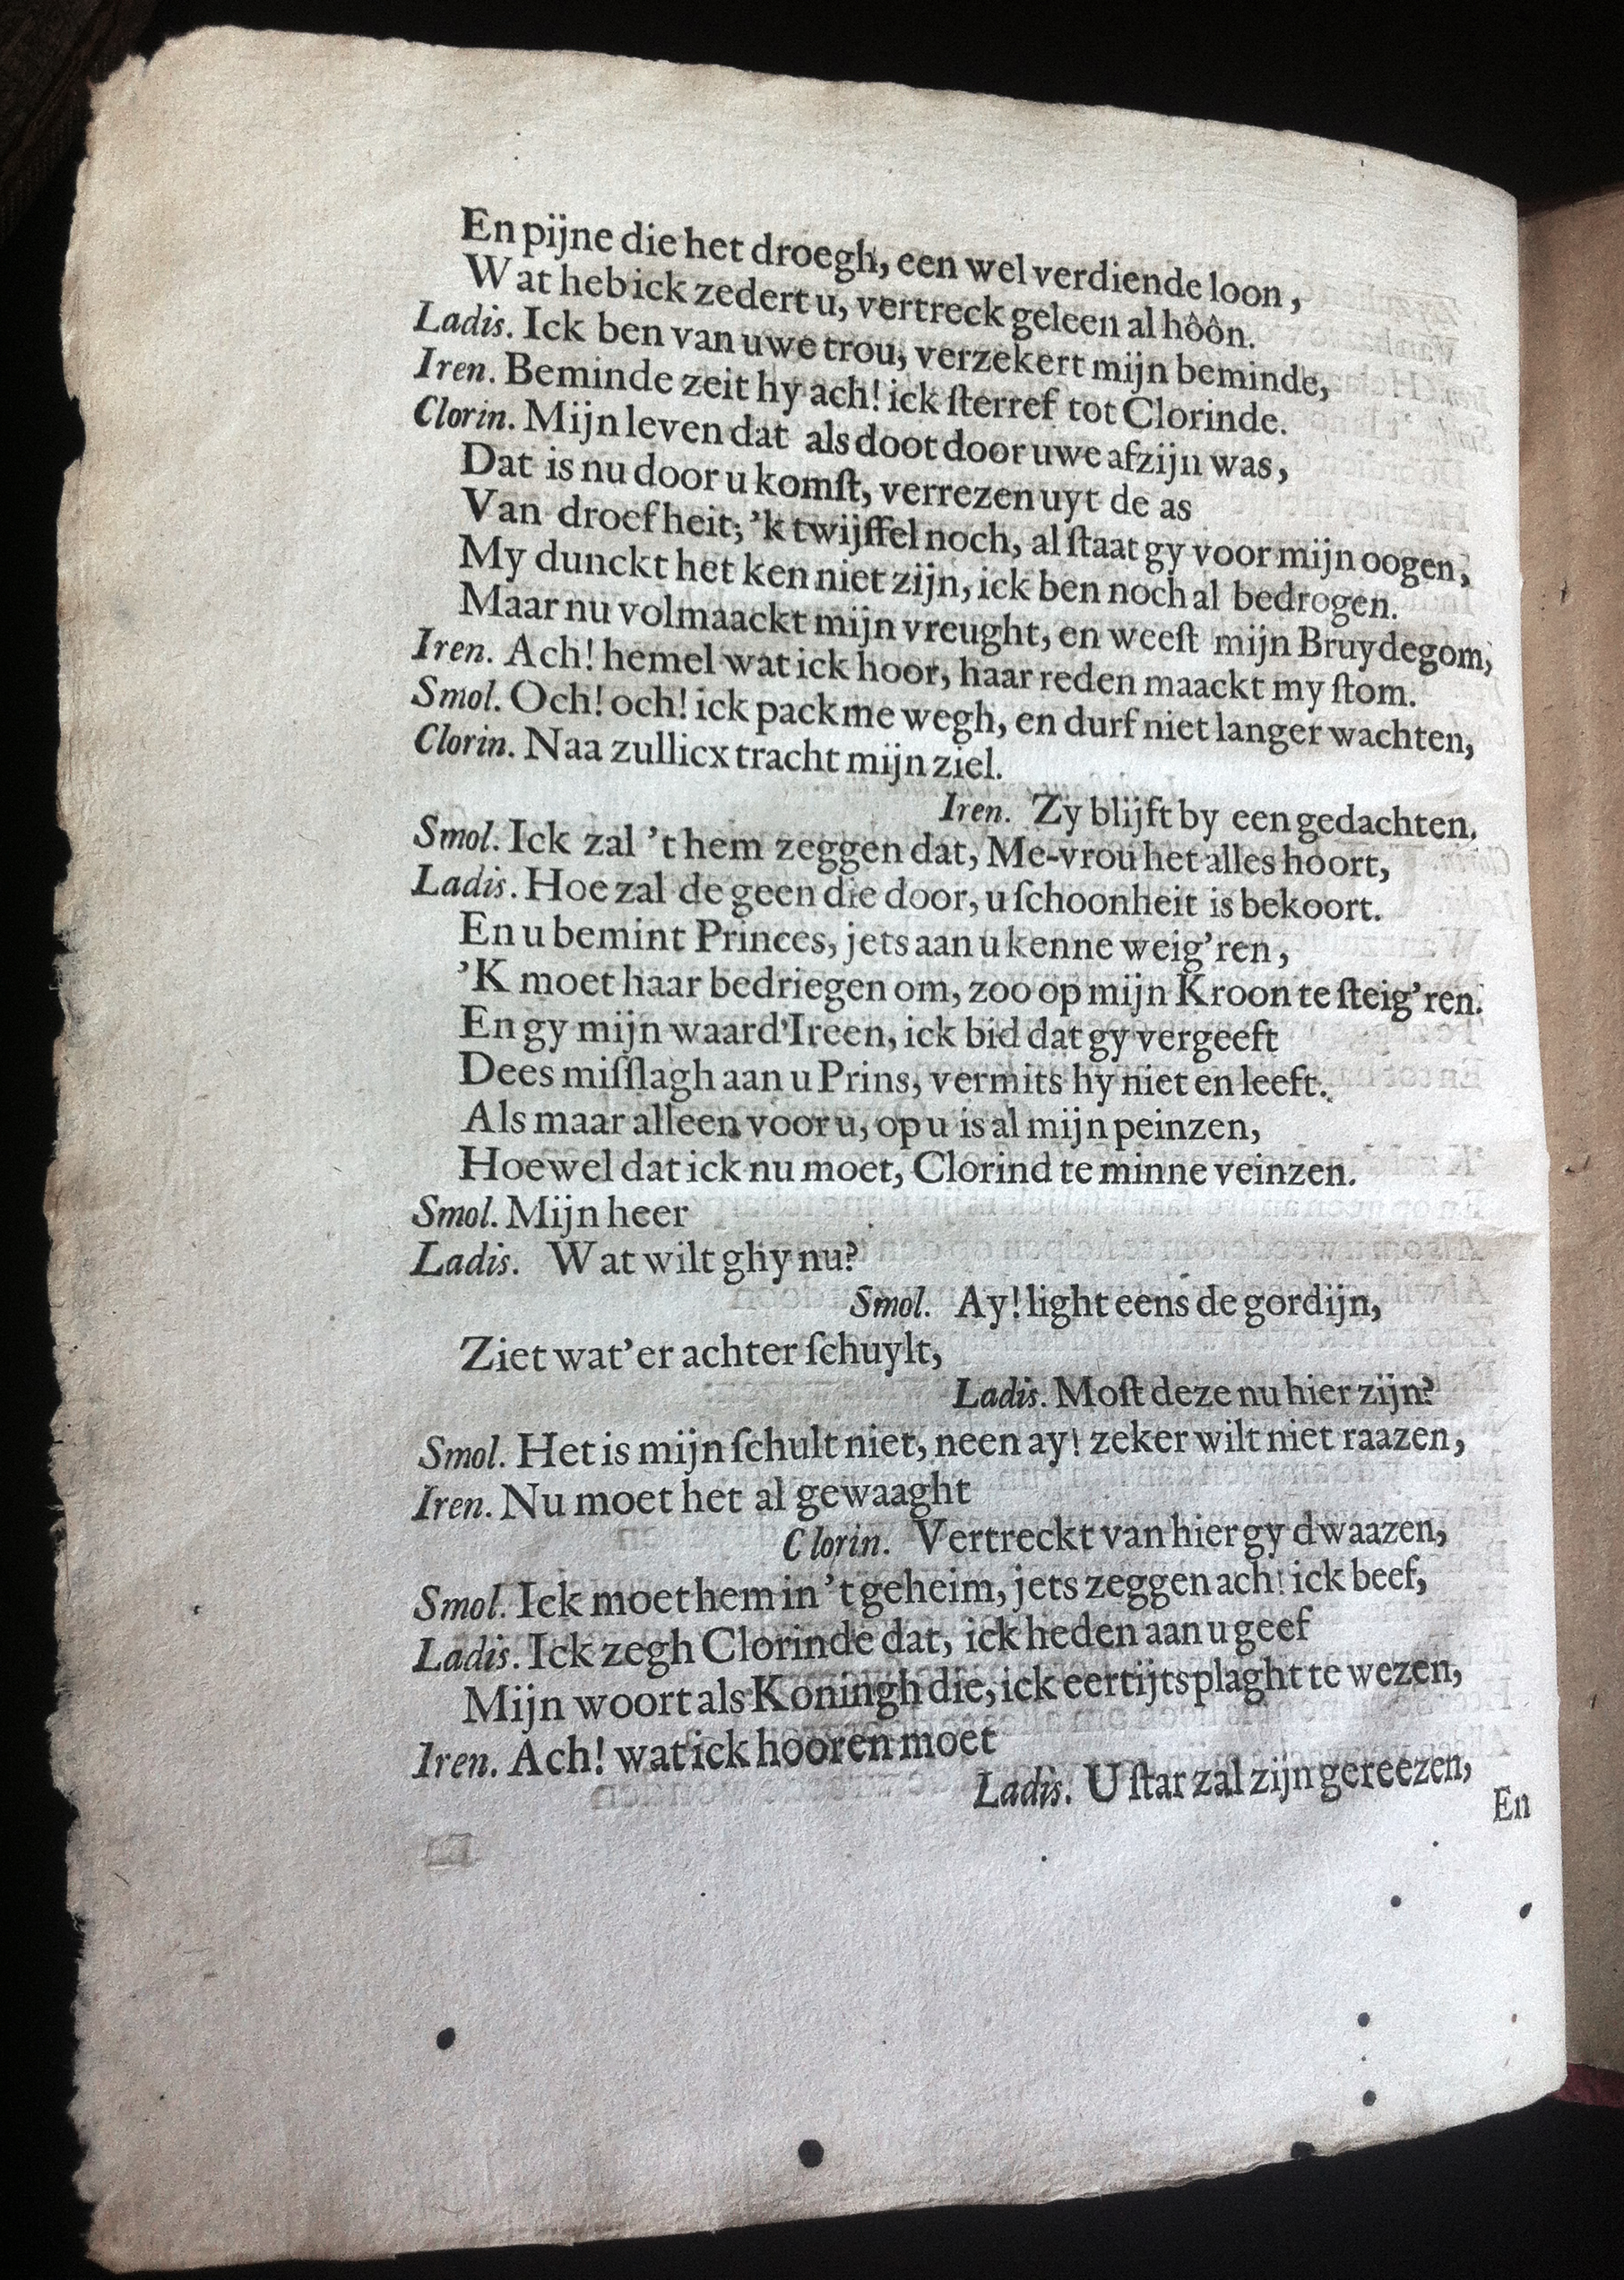 En pijne die het droegh, een wel verdiende loon,
Wat heb ick zedert u, vertreck geleen al hôôn.
Ladis. Ick ben van uwe trou, verzekert mijn beminde,
Iren. Beminde zeit hy ach! ick ſterref tot Clorinde.
Clorin. Mijn leven dat als doot door uwe afzijn was,
Dat is nu door u komſt, verrezen uyt de as
Van droefheit; 'k twijffel noch, al ſtaat gy voor mijn oogen,
My dunckt het ken niet zijn, ick ben noch al bedrogen.
Maar nu volmaackt mijn vreught, en weeſt mijn Bruydegom,
Iren. Ach! hemel wat ick hoor, haar reden maackt my ſtom.
Smol. Och! och! ick pack me wegh, en durf niet langer wachten,
Clorin. Naa zullicx tracht mijn ziel.
Iren. Zy blijft by een gedachten.
Smol. Ick zal 't hem zeggen dat, Me-vrou het alles hoort,
Ladis. Hoe zal de geen die door, u ſchoonheit is bekoort.
En u bemint Princes, jets aan u kenne weig'ren,
'K moet haar bedriegen om, zoo op mijn Kroon te ſteig'ren.
En gy mijn waard' Ireen, ick bid dat gy vergeeft
Dees miſſlagh aan u Prins, vermits hy niet en leeft.
Als maar alleen voor u, op u is al mijn peinzen,
Hoewel dat ick nu moet, Clorind te minne veinzen.
Smol. Mijn heer
Ladis. Wat wilt ghy nu?
Smol. Ay! light eens de gordijn,
Ziet wat'er achter ſchuylt,
Ladis. Moſt deze nu hier zijn?
Smol. Het is mijn ſchult niet, neen ay! zeker wilt niet raazen,
Iren. Nu moet het al gewaaght
Clorin. Vertreckt van hier gy dwaazen,
Smol. Ick moet hem in 't geheim, jets zeggen ach! ick beef,
Ladis. Ick zegh Clorinde dat, ick heden aan u geef
Mijn woort als Koningh die, ick eertijts plaght te wezen,
Iren. Ach! wat ick hooren moet
Ladis. U ſtar zal zijn gereezen,
En